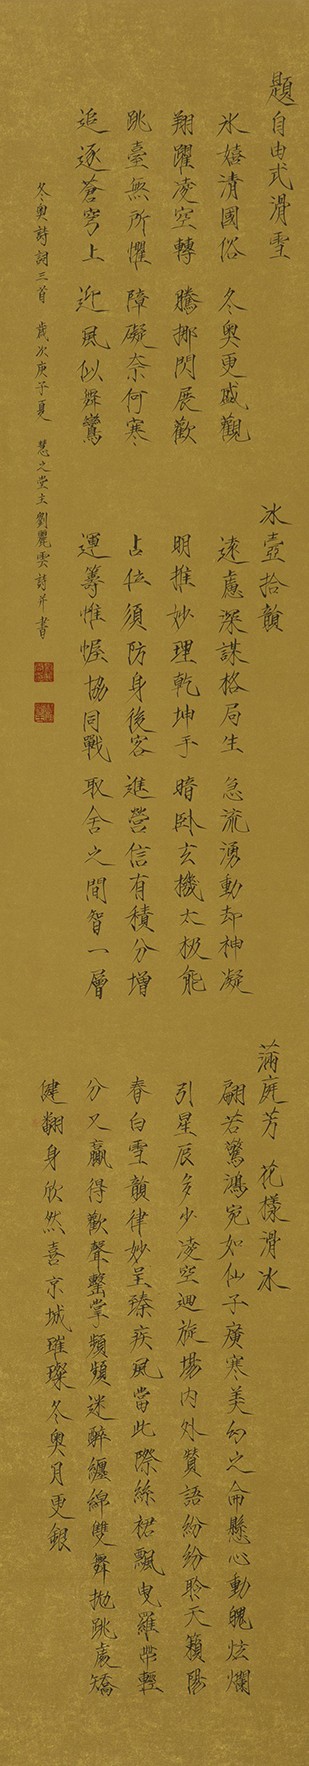 題自由式滑雪
冰嬉清國俗 冬奧更盛觀
翔躍凌空轉 騰挪閃展歡
跳臺無所懼 障礙奈何寒
追逐蒼穹上 迎風似舞鸞
冰壺拾韻
遠慮深謀格局生 急流湧動却神凝
明推妙理乾坤手 暗卧玄機太极能
占位須防身後客 進營信有積分增
運籌惟幄協同戰 取舍之間智一層
滿庭芳 花樣滑冰
翩若驚鴻宛如仙子廣寒美幻之侖懸心動魄炫爛
引星辰多少凌空迴旋場内外贊語紛紛聆天籟陽
春白雪韻律妙呈臻疾風當此際絲裙飄曳羅帶輕
分又贏得歡聲擊掌頻頻迷醉纏綿雙舞拋跳處矯
健翻身欣然喜京城璀璨冬奧月更銀
冬奧詩詞三首 歲次庚子夏 慧之堂主劉麗雲詩并書